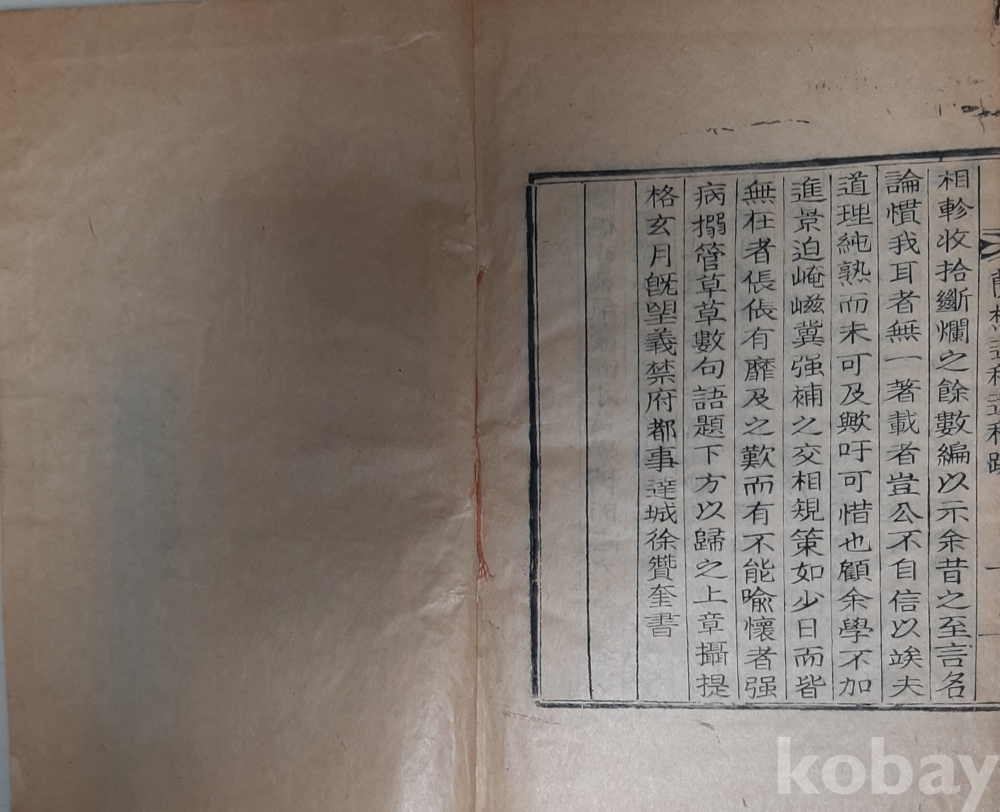 相軫收拾斷爛之餘數編以示余昔之至言名
論慣我耳者無一著載者豈公不自信以竢夫
道理純熟而未可及歟吁可惜也顧余學不加
進景迫崦嵫冀强補之交相規策如少日而皆
無在者倀倀有靡及之歎而有不能喩懷者强
病搦管草草數句語題下方以歸之上章攝提
格玄月旣望義禁府都事達城徐贊奎書
kobay